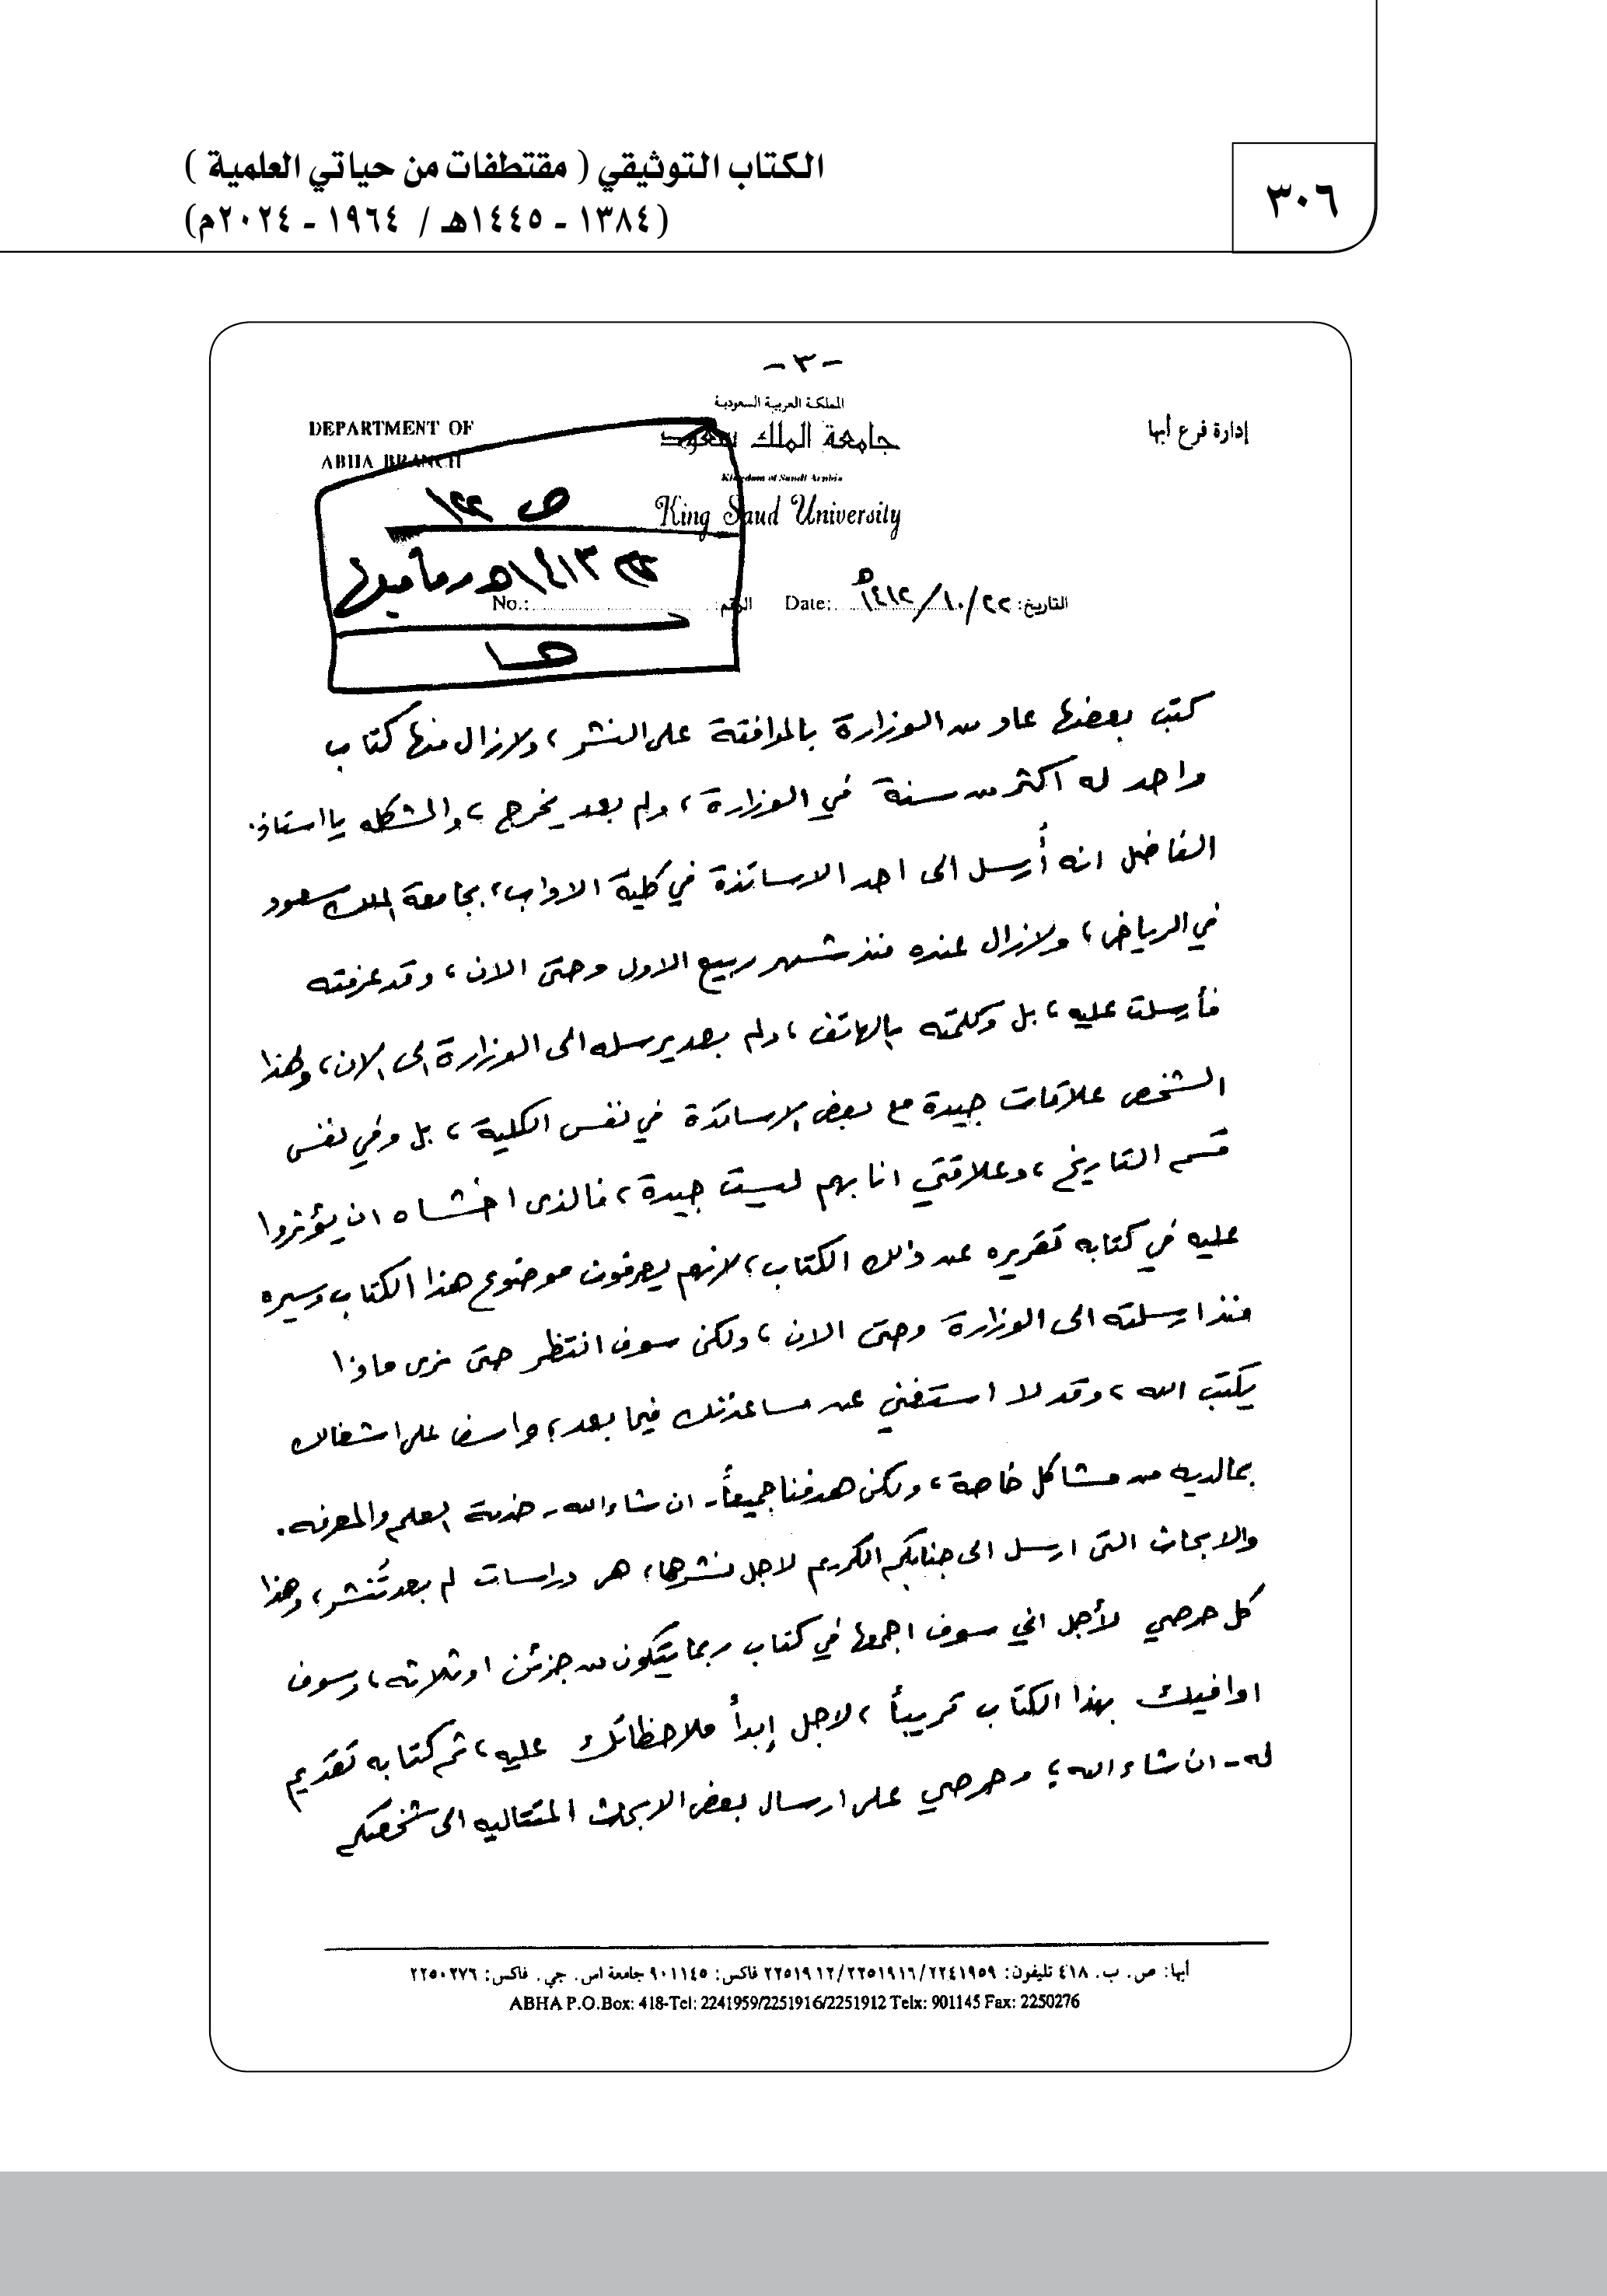 الكتاب التوثيقي ( مقتطفات من حياتي العلمية )
(١٣٨٤ - ١٤٤٥هـ / ١٩٦٤ - ٢٠٢٤م)
٣٠٦
-٣-
المملكة العربية السعودية
إدارة فرع أبها
جامعة الملك سعود
DEPARTMENT OF
ABHA BRANCH
Kingdom of Saudi Arabia
King Saud University
ص ١٢٢
١٤١٣هـ وما قبلها
التاريخ: ٢٢/١٠/١٤١٢هـ Date: الرقم: No.:
هـ١
كتب بعضها عاد من الوزارة بالموافقة على النشر، ولازال منها كتاب
واحد له اكثر من سنة في الوزارة، ولم بعد يخرج، والمشكله يا استاذ.
الفاضل انه أُرسل الى احد الاساتذة في كلية الاداب، بجامعة الملك سعود
في الرياض، ولازال عنده منذ شهر ربيع الاول وحتى الان، وقد عرفته
فأرسلت عليه، بل وكلمته بالهاتف، ولم بعد يرسله الى الوزارة الى الان، ولهذا
الشخص علاقات جيدة مع بعض الاساتذة في نفس الكلية، بل وفي نفس
قسم التاريخ، وعلاقتي انا بهم ليست جيدة، فالذى اخشاه ان يؤثروا
عليه في كتابه تقريره عن ذلك الكتاب، لانهم يعرفون موضوع هذا الكتاب وسيره
منذ ارسلته الى الوزارة وحتى الان، ولكن سوف انتظر حتى نرى ماذا
يكتب الله، وقد لا استغني عن مساعدتك فيما بعد، واسف على اشغالك
بمالديه من مشاكل خاصة، ولكن هدفنا جميعاً - ان شاء الله - خدمة العلم والمعرفه.
والابحاث التى ارسل الى جنابكم الكريم لاجل نشرها، هى دراسات لم بعد تُنشر، وهذا
كل حرصي لأجل اني سوف اجمعها في كتاب ربما يتكون من جزئين او ثلاثه، وسوف
اوافيك بهذا الكتاب قريباً، لاجل إبدأ ملاحظاتك عليه، ثم كتابه تقديم
له - ان شاء الله، وحرصي على ارسال بعض الابحاث المتتاليه الى شخصكم
أبها: ص. ب. ٤١٨ تليفون: ٢٢٤١٩٥٩/٢٢٥١٩١٦/٢٢٥١٩١٢ فاكس: ٩٠١١٤٥ جامعة اس. جي. فاكس: ٢٢٥٠٢٧٦
ABHA P.O.Box: 418-Tel: 2241959/2251916/2251912 Telx: 901145 Fax: 2250276